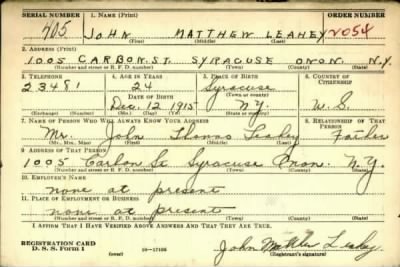 SERIAL NUMBER 1. NAME (Print) ORDER NUMBER
705 JOHN MATTHEW LEAHEY 2054
(First) (Middle) (Last)
2. ADDRESS (Print)
1005 CARBON. ST. SYRACUSE ONON. N.Y.
(Number and street or R. F. D. number) (Town) (County) (State)
3. TELEPHONE 4. AGE IN YEARS 5. PLACE OF BIRTH 6. COUNTRY OF CITIZENSHIP
23481 24 Syracuse
DATE OF BIRTH (Town or county)
Dec. 12 1915 N.Y. U.S.
(Exchange) (Number) (Mo.) (Day) (Yr.) (State or country)
7. NAME OF PERSON WHO WILL ALWAYS KNOW YOUR ADDRESS 8. RELATIONSHIP OF THAT PERSON
Mr. John Thomas Leahey Father
(Mr., Mrs., Miss) (First) (Middle) (Last)
9. ADDRESS OF THAT PERSON
1005 Carbon St Syracuse Onon. N.Y.
(Number and street or R. F. D. number) (Town) (County) (State)
10. EMPLOYER'S NAME
none at present
11. PLACE OF EMPLOYMENT OR BUSINESS
none at present
(Number and street or R. F. D. number) (Town) (County) (State)
I AFFIRM THAT I HAVE VERIFIED ABOVE ANSWERS AND THAT THEY ARE TRUE.
REGISTRATION CARD
D. S. S. FORM 1 (over) 16—17105 John Matthew Leahey
(Registrant's signature)